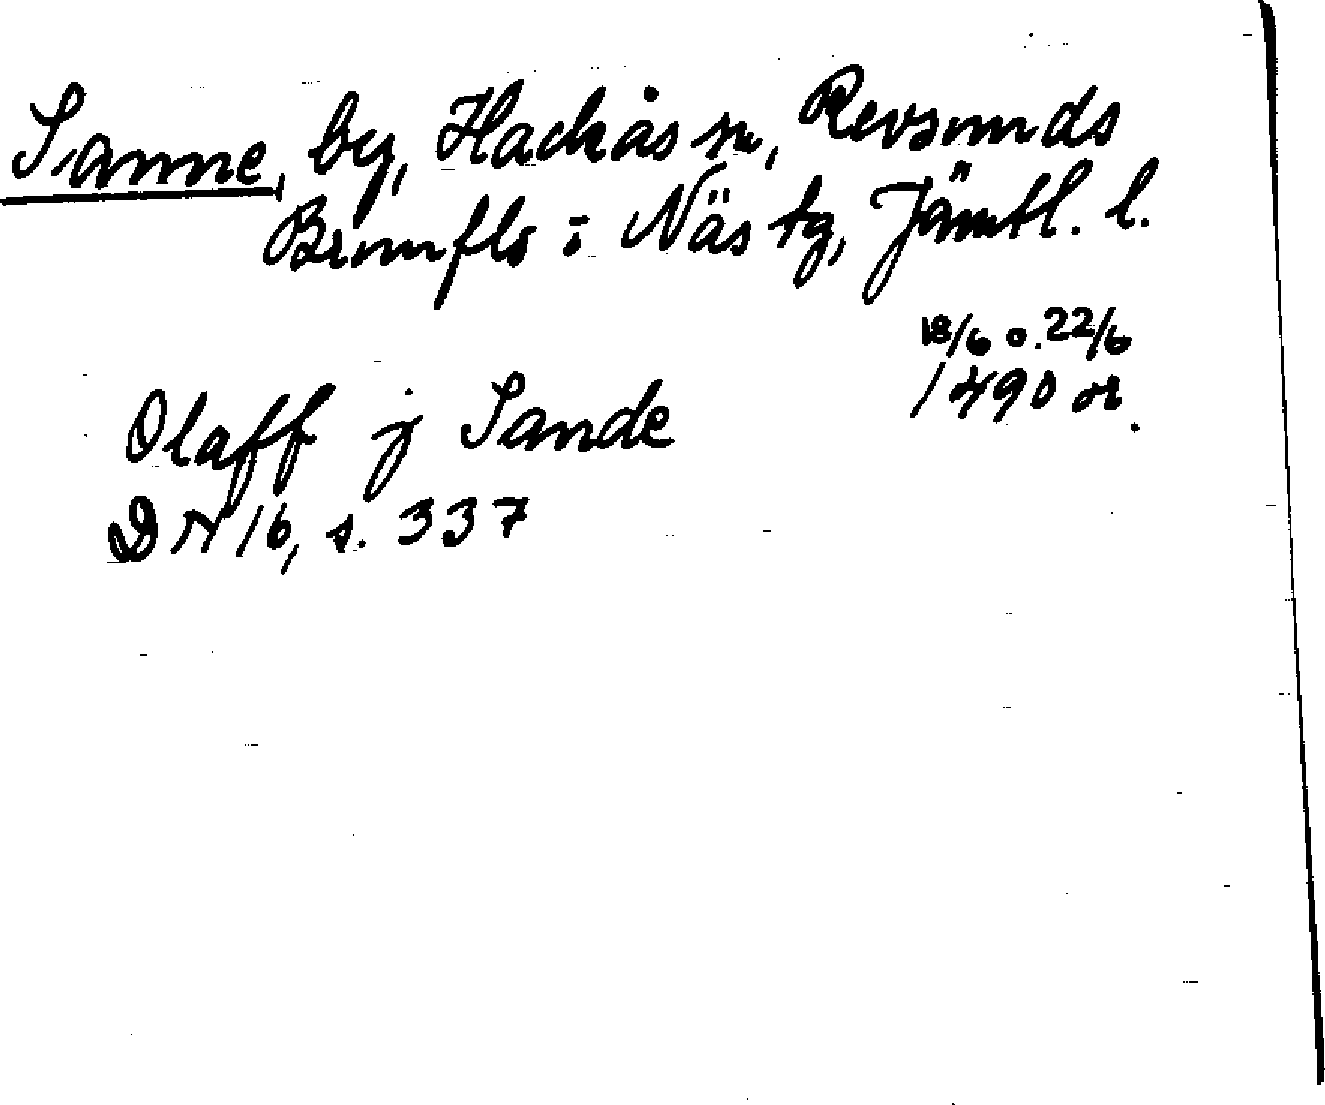 Sanne, by, Hackås sn, Revsunds
Brunflo : Näs tg, Jämtl. l.
18/6 o. 22/6
1490 or.
Olaff j Sande
DN 16, s. 337